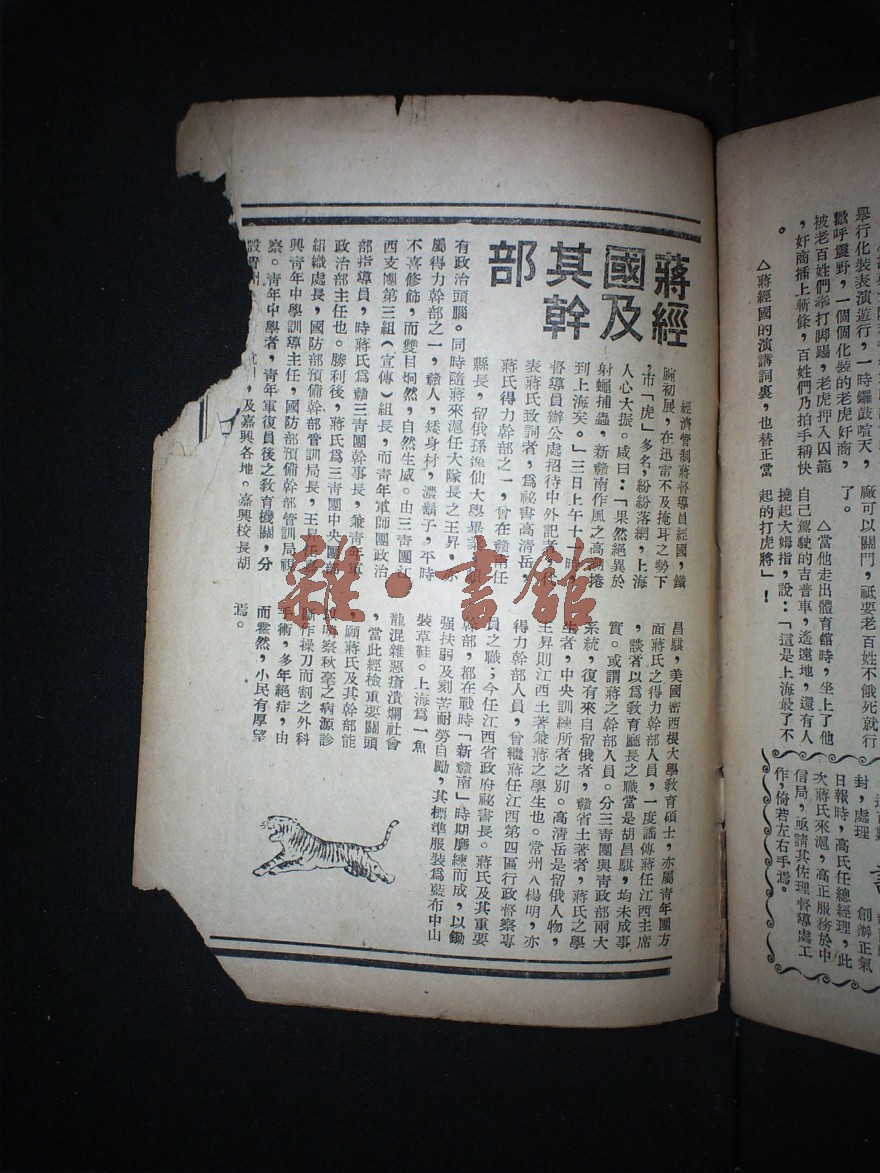 蔣經
國及
其幹
部
經濟管制蔣督導員經國，鐵
腕初展，在迅雷不及掩耳之勢下
，市「虎」多名，紛紛落網，上海
人心大振。咸曰：「果然絕異於
射蠅捕蟲，新贛南作風之高潮捲
到上海矣。」三日上午十一時，
督導員辦公處招待中外記者，代
表蔣氏致詞者，爲祕書高清岳，
蔣氏得力幹部之一，曾在贛南任
縣長，留俄孫逸仙大學畢業，頗
有政治頭腦。同時隨蔣來滬任大隊長之王昇，亦
屬得力幹部之一，贛人，矮身材，濃鬍子，平時
不喜修飾，而雙目炯然，自然生威。由三靑團江
西支團第三組（宣傳）組長，而靑年軍師團政治
部指導員，時蔣氏爲贛三靑團幹事長，兼靑年軍
政治部主任也。勝利後，蔣氏爲三靑團中央團部
組織處長，國防部預備幹部管訓局長，王昇任嘉
興靑年中學訓導主任，國防部預備幹部管訓局視
察。靑年中學者，靑年軍復員後之敎育機關，分
設
，及嘉興各地。嘉興校長胡
昌騏，美國密西根大學敎育碩士，亦屬靑年團方
面蔣氏之得力幹部人員，一度謠傳蔣任江西主席
，談者以爲敎育廳長之職當是胡昌騏，均未成事
實。或謂蔣之幹部人員。分三靑團與靑政部兩大
系統，復有來自留俄者，贛省土著者，蔣氏之學
生者，中央訓練所者之別。高清岳是留俄人物，
王昇則江西土著兼蔣之學生也。常州人楊明，亦
得力幹部人員，曾繼蔣任江西第四區行政督察專
員之職；今任江西省政府祕書長。蔣氏及其重要
幹部，都在戰時「新贛南」時期磨練而成，以鋤
强扶弱及刻苦耐勞自勵，其標準服裝爲藍布中山
裝草鞋。上海爲一魚
龍混雜惡瘡潰爛社會
，當此經檢重要關頭
，願蔣氏及其幹部能
以明察秋毫之病源診
斷作操刀而割之外科
手術，多年絕症，由
而霍然，小民有厚望
焉。
雜·書館
舉行化裝表演遊行，一時鑼鼓喧天，
歡呼震野，一個個化裝的老虎奸商，
被老百姓們拳打脚踢，老虎押入囚籠
，奸商插上斬條，百姓們乃拍手稱快
。
△蔣經國的演講詞裏，也替正當
廠可以關門，祇要老百姓不餓死就行
了。
△當他走出體育館時，坐上了他
自己駕駛的吉普車，遙遠地，還有人
撓起大姆指，說：「這是上海最了不
起的打虎將」！
創辦正氣
日報時，高氏任總經理，此
次蔣氏來滬，高正服務於中
信局，亟請其佐理督導處工
作，倚若左右手焉。
封，處理